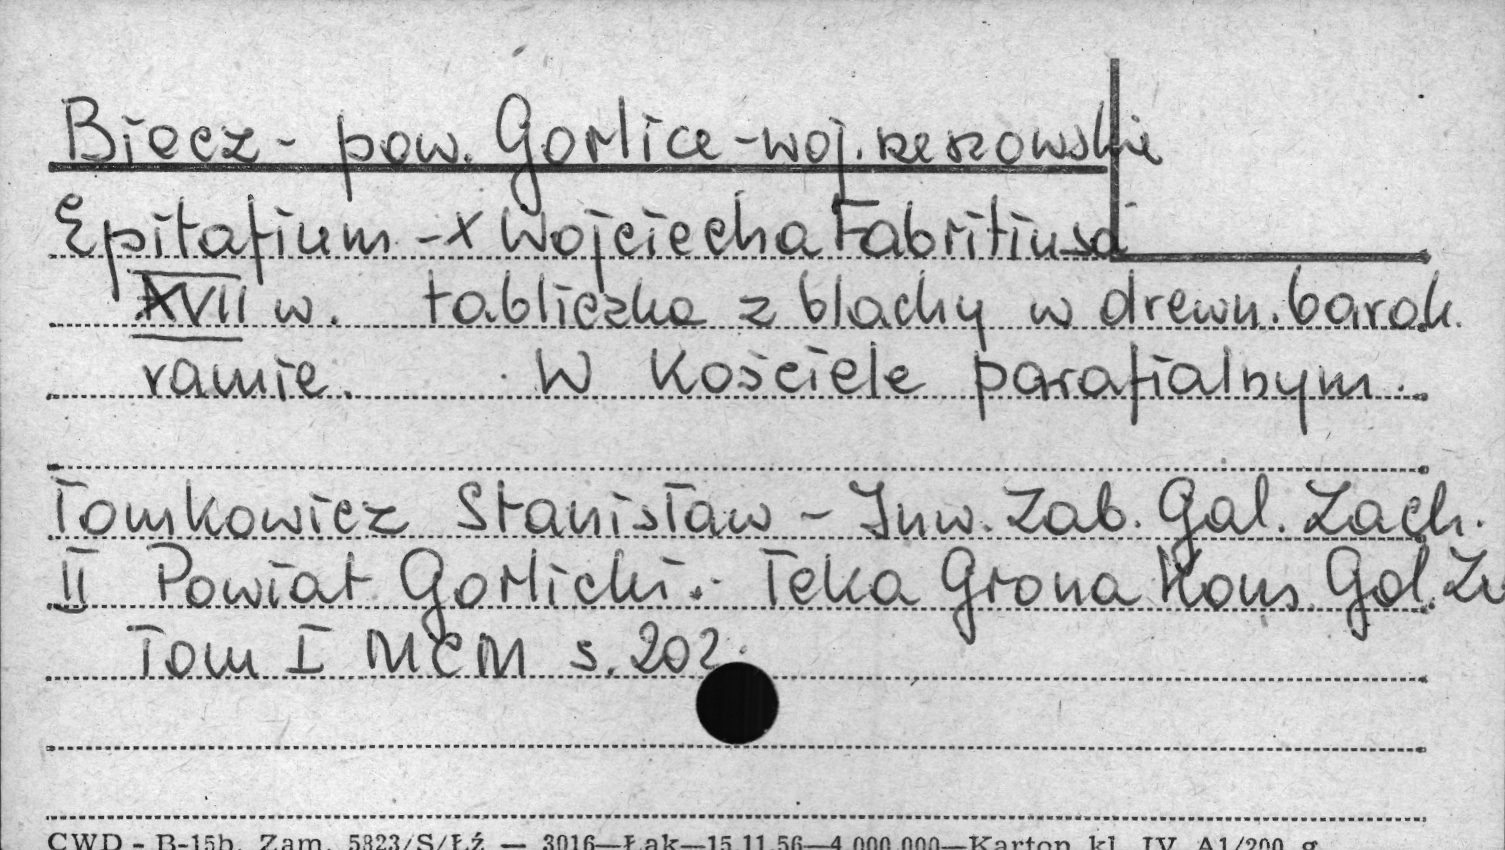 Biecz - pow. Gorlice - woj. rzeszowskie
Epitafium - X Wojciecha Fabritiusa
XVII w. tabliczka z blachy w drewn. barok.
ramie. W Kościele parafialnym.
Tomkowicz Stanisław - Inw. Zab. Gal. Zach.
II Powiat Gorlicki. Teka Grona Kons. Gal. Za
Tom I MCM s. 202.
CWD - B-15b. Zam. 5823/S/Łź — 3016—Łak—15.11.56—4.000.000—Karton kl. IV. A1/200 g